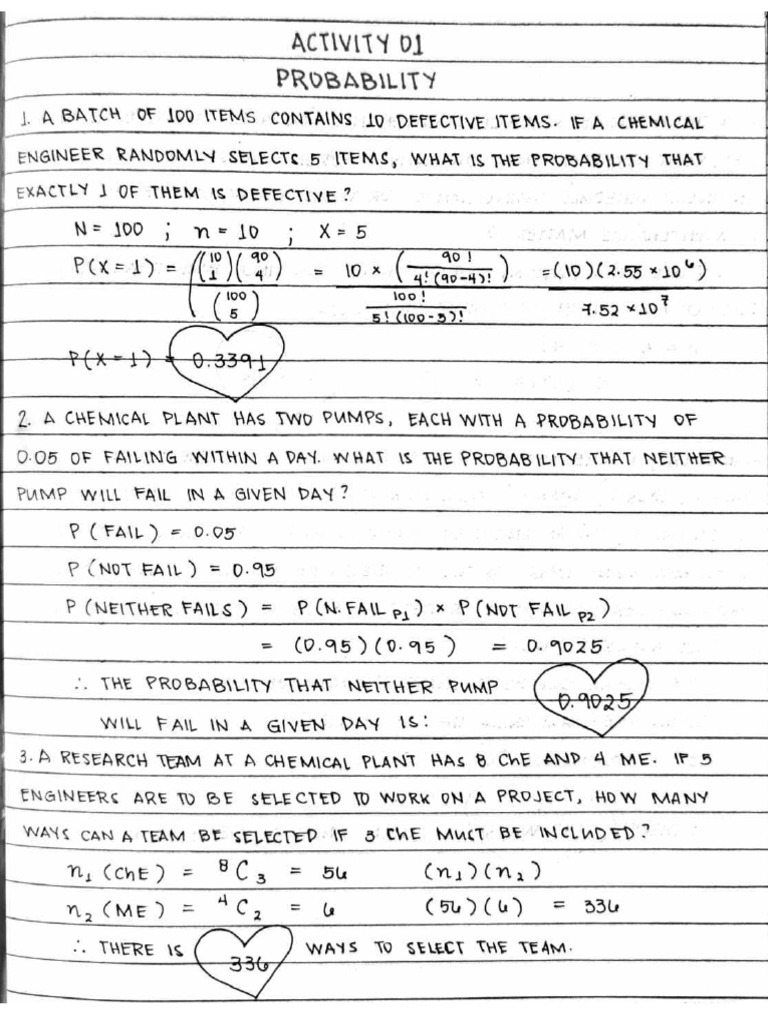 ACTIVITY 01
PROBABILITY
1. A BATCH OF 100 ITEMS CONTAINS 10 DEFECTIVE ITEMS. IF A CHEMICAL
ENGINEER RANDOMLY SELECTS 5 ITEMS, WHAT IS THE PROBABILITY THAT
EXACTLY 1 OF THEM IS DEFECTIVE?
N = 100 ; n = 10 ; X = 5
P(X = 1) = (10 1)(90 4) / (100 5) = 10 × (90! / 4!(90-4)!) / (100! / 5!(100-5)!) = (10)(2.55 × 10⁶) / 7.52 × 10⁷
P(X = 1) = 0.3391
2. A CHEMICAL PLANT HAS TWO PUMPS, EACH WITH A PROBABILITY OF
0.05 OF FAILING WITHIN A DAY. WHAT IS THE PROBABILITY THAT NEITHER
PUMP WILL FAIL IN A GIVEN DAY?
P (FAIL) = 0.05
P (NOT FAIL) = 0.95
P (NEITHER FAILS) = P (N. FAIL P1) × P (NOT FAIL P2)
= (0.95)(0.95) = 0.9025
∴ THE PROBABILITY THAT NEITHER PUMP
WILL FAIL IN A GIVEN DAY IS: 0.9025
3. A RESEARCH TEAM AT A CHEMICAL PLANT HAS 8 ChE AND 4 ME. IF 5
ENGINEERS ARE TO BE SELECTED TO WORK ON A PROJECT, HOW MANY
WAYS CAN A TEAM BE SELECTED IF 3 ChE MUST BE INCLUDED?
n₁ (ChE) = ⁸C₃ = 56 (n₁)(n₂)
n₂ (ME) = ⁴C₂ = 6 (56)(6) = 336
∴ THERE IS 336 WAYS TO SELECT THE TEAM.